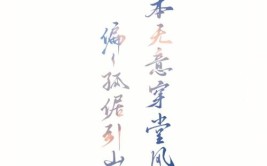 本无意穿堂风
偏偏孤倨引山